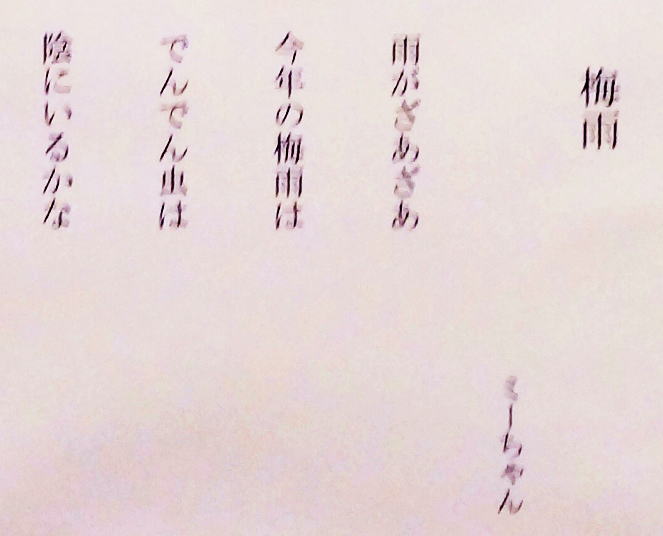 梅雨
くーちゃん
雨がざあざあ
今年の梅雨は
でんでん虫は
陰にいるかな